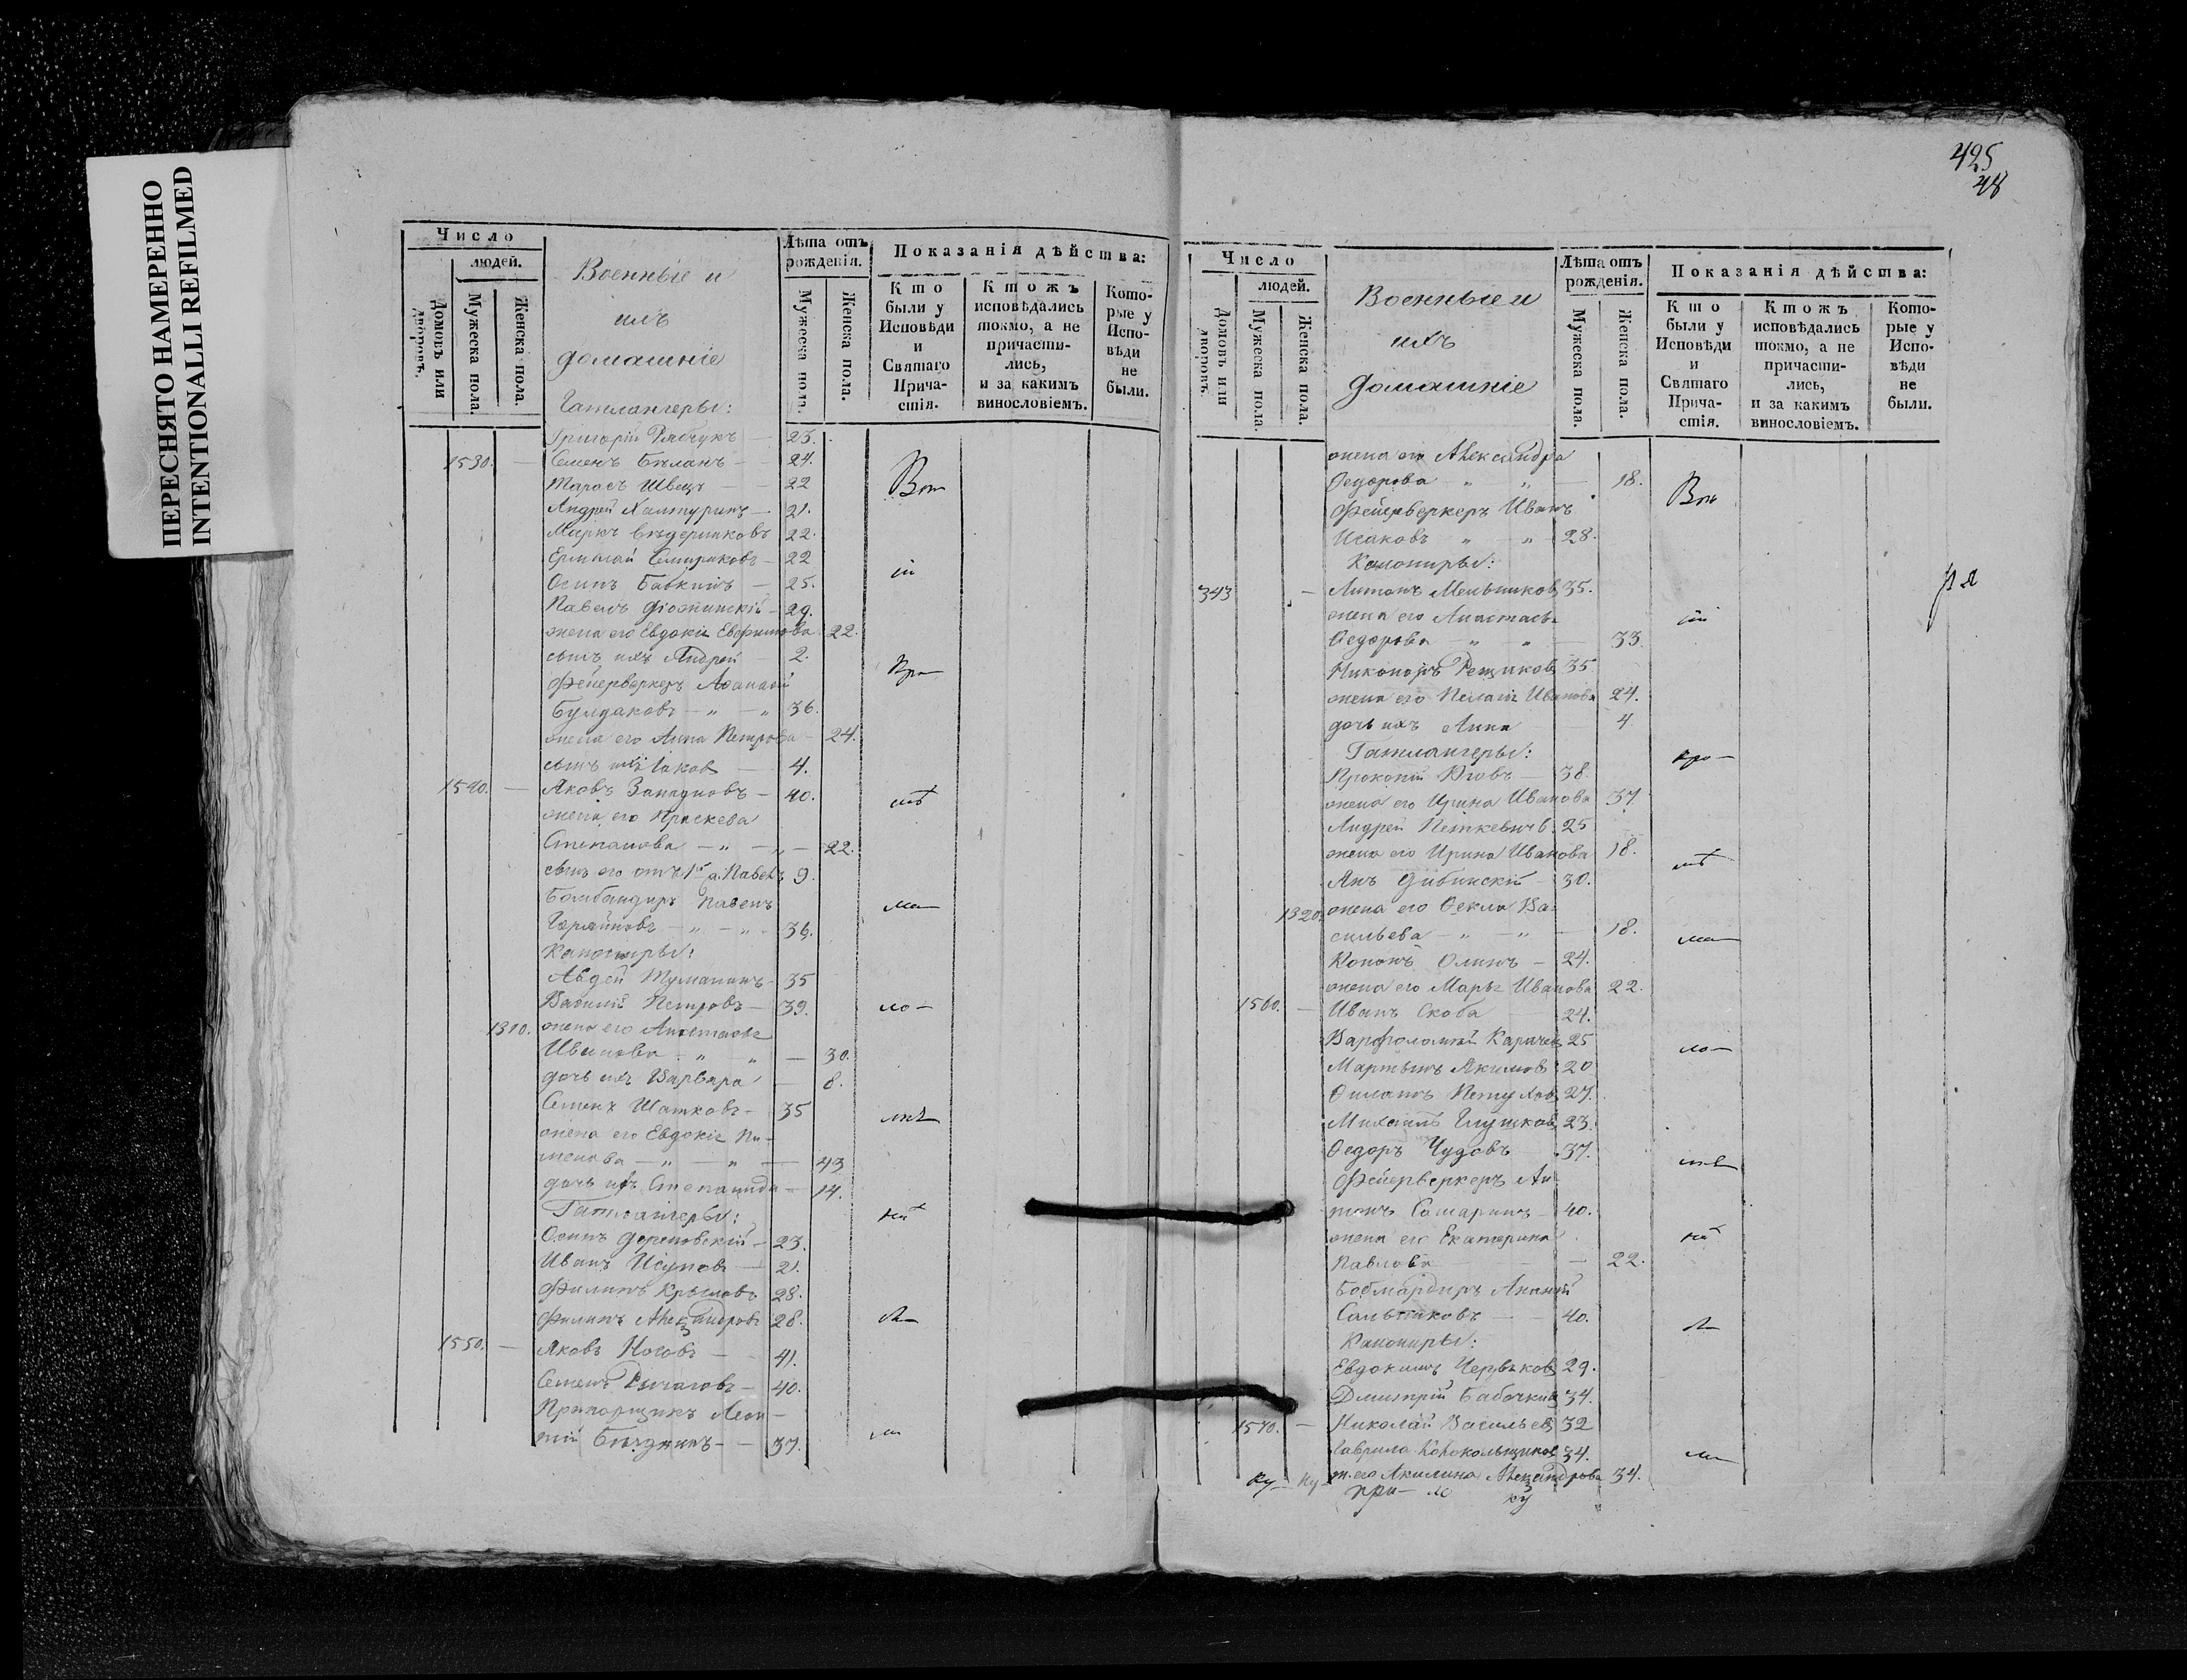 ПЕРЕСНЯТО НАМЕРЕННО
INTENTIONALLI REFILMED
Число
людей.
Домовъ или дворовъ.
Мужеска пола.
Женска пола.
Военные и
ихъ
домашніе
Гатлангеры:
Лѣта отъ рожденія.
Мужеска пола.
Женска пола.
Показанія дѣйства:
Кто были у Исповѣди и Святаго Прича- стія.
Ктожъ исповѣдались токмо, а не причасти- лись, и за какимъ винословіемъ.
Кото- рые у Испо- вѣди не были.
Григорій Рябчукъ — 23.
1530. — Семенъ Бѣланъ — 24.
Тарасъ Швецъ — 22
Андрей Халтуринъ — 21.
Маркъ 22.
Ермолай — 22
Осипъ Бабкинъ — 25.
Павелъ — 29.
жена его Евдокія Евфимова 22.
сынъ ихъ Андрей — 2.
Фейерверкеръ Афанасій
Булдаковъ — „ — „ 36.
жена его Анна Петрова — 24.
сынъ ихъ Іаковъ — 4.
1540. — Яковъ — 40.
жена его Праскева
Степанова — „ — „ — 22.
сынъ его отъ 1го Павелъ 9.
Бомбандиръ Павелъ
— „ — „ - 36.
Канониры:
Авдей Тумановъ - 35
Василій Петровъ — 39.
1310. жена его Анастасія
Иванова - „ „ — 30.
дочь ихъ Варвара — 8.
Семенъ Шатковъ - 35
жена его Евдокія Пи-
менова — „ — „ — 43
дочь ихъ Степанида — 14.
Гатлангеры:
Осипъ — 23.
Иванъ Исуповъ — 21.
Филипъ Крыловъ 28.
Филипъ Александровъ 28.
1550. — Яковъ Ноговъ — 41.
Семенъ Рычаговъ — 40.
Прапорщикъ Леон-
тій — 37.
Вот
ій
Кра
снѣ
ма
ло
кій
ли
425
48
Число
людей.
Домовъ или дворовъ.
Мужеска пола.
Женска пола.
Военные и
ихъ
домашніе
Лѣта отъ рожденія.
Мужеска пола.
Женска пола.
Показанія дѣйства:
Кто были у Исповѣди и Святаго Прича- стія.
Ктожъ исповѣдались токмо, а не причасти- лись, и за какимъ винословіемъ.
Кото- рые у Испо- вѣди не были.
жена его Александра
Ѳедорова „ „ — 18.
Фейерверкеръ Иванъ
Исаковъ „ „ 28.
Канониры:
343 — Антонъ Мельниковъ 35.
жена его Анастасія
Ѳедорова „ „ — 33.
Никоноръ Рещиковъ 35
жена его Пелагія Иванова 24.
дочь ихъ Анна — 4
Гатлангеры:
Прокопій — 38.
жена его Ирина Иванова 37.
Андрей Петкевичъ 25
жена его Ирина Иванова 18.
Янъ — 30.
1320. жена его Ѳекла Ва-
сильева — „ — „ — 18.
Кононъ Олинъ — 24.
жена его Марья Иванова 22.
1560. — Иванъ Скоба 24.
Варфоломей 25
Мартынъ Якимовъ 20
Филатъ Петуховъ 27.
Михаилъ Глушковъ 23.
Ѳедоръ Чудовъ 37.
Фейерверкеръ Ан
тонъ Самаринъ — 40.
жена его Екатерина
Павлова — 22.
Бобмардиръ Ананій
Салтыковъ — 40.
Канониры:
Евдокимъ Червяковъ 29.
Дмитрій Бабочкинъ 34.
1570. — Николай Васильевъ 32
Гаврила Колокольщиковъ 34.
ж. его Акилина Александрова 34.